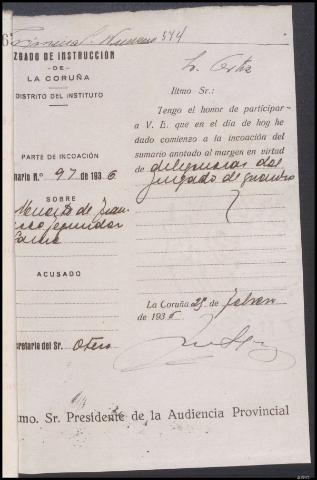 Número 574
ZGADO DE INSTRUCCIÓN
-DE-
LA CORUÑA
DISTRITO DEL INSTITUTO
PARTE DE INCOACIÓN
nario N.º 97 de 1936
SOBRE
Muerte de Fran
cisco
ACUSADO
cretaría del Sr. Otero
Iltmo Sr:
Tengo el honor de participar
a V. E. que en el día de hog he
dado comienzo a la incoación del
sumario anotado al margen en virtud
de diligencias del
juzgado de guardia
La Coruña 25 de febrero
de 1936
tmo. Sr. Presidente de la Audiencia Provincial